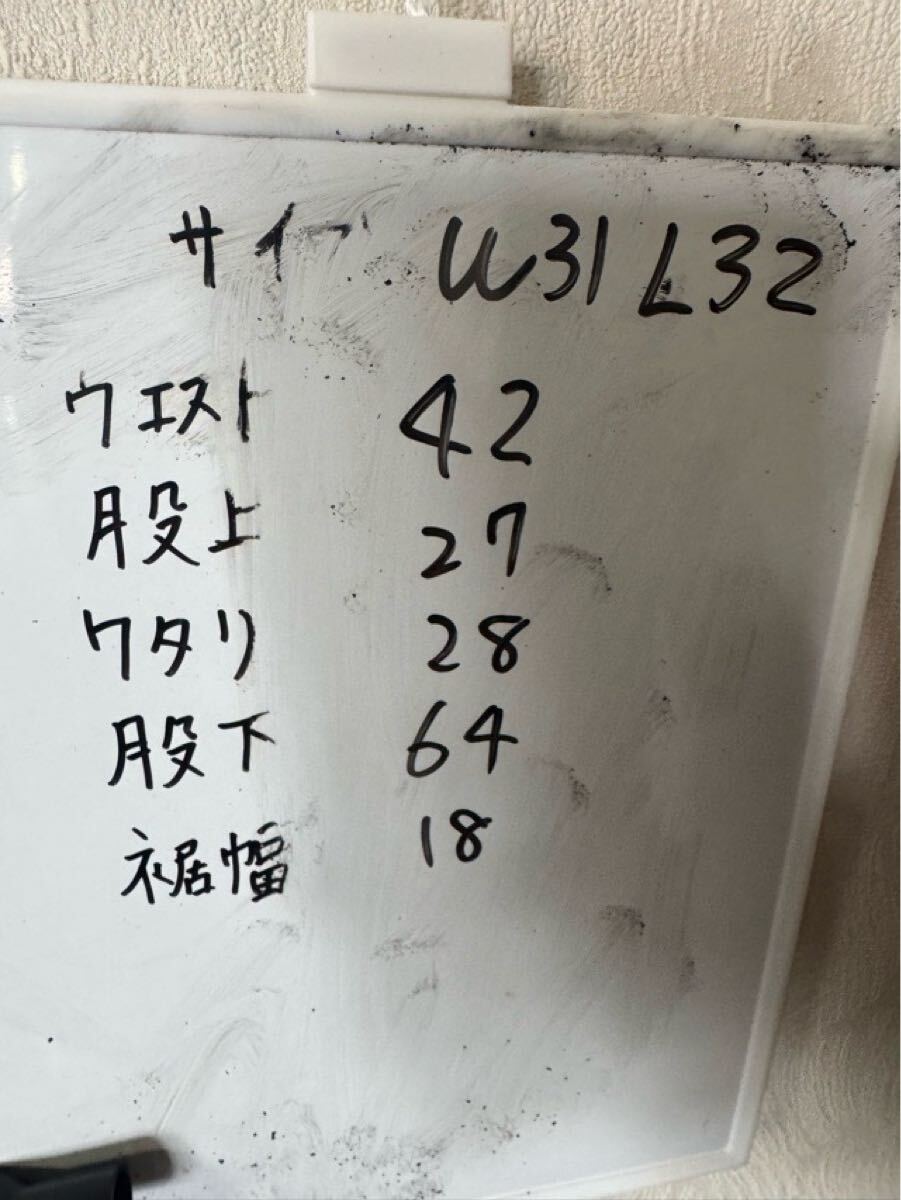 サイズ W31 L32
ウエスト 42
股上 27
ワタリ 28
股下 64
裾幅 18